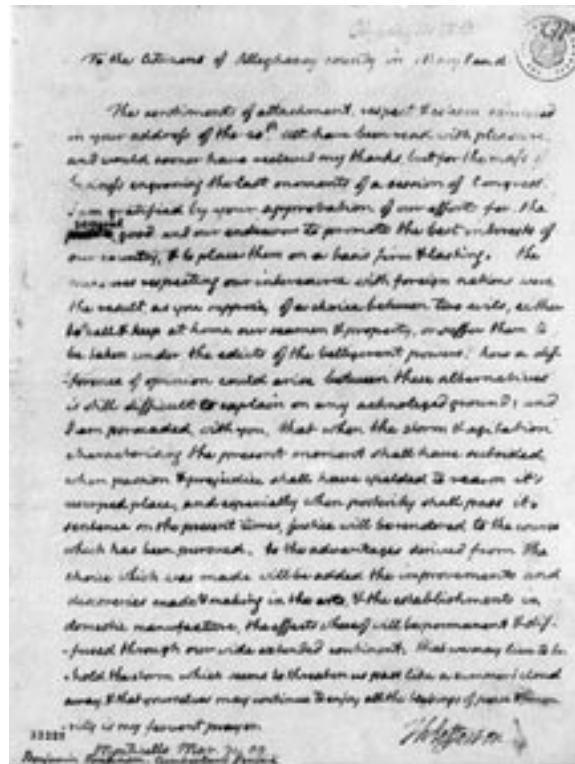 To the Citizens of Alleghaney county in Maryland
The sentiments of attachment, respect & esteem expressed
in your address of the 20th ult have been read with pleasure,
and would sooner have recieved my thanks, but for the mass of
business engrossing the last moments of a session of Congress.
I am gratified by your approbation of our efforts for the
general
good and our endeavors to promote the best interests of
our country, & to place them on a basis firm & lasting. the
measures respecting our intercourse with foreign nations were
the result, as you suppose, of a choice between two evils, either
to call & keep at home our seamen & property, or suffer them to
be taken under the edicts of the belligerent powers. how a dif
-ference of opinion could arise between these alternatives
is still difficult to explain on any acknoleged ground; and
I am persuaded, with you, that when the storm & agitation
characterising the present moment shall have subsided,
when passion & prejudice shall have yielded to reason it's
usurped place, and especially when posterity shall pass it's
sentence on the present times, justice will be rendered to the course
which has been pursued. to the advantages derived from the
choice which was made will be added the improvements and
discoveries made & making in the arts, & the establishments in
domestic manufacture, the effects whereof will be permanent & dif-
-fused through our wide extended continent. that we may live to be
-hold the storm which seems to threaten us pass like a summer's cloud
away, & that yourselves may continue to enjoy all the blessings of peace &
-rity is my fervent prayer.
Th Jefferson
Monticello Mar. 09
Benjamin